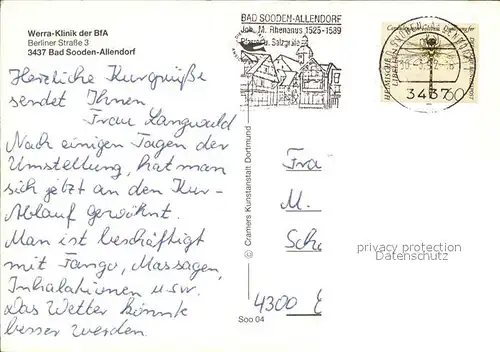 Werra-Klinik der BfA
Berliner Straße 3
3437 Bad Sooden-Allendorf
Herzliche Kurgrüße
sendet Ihnen
Frau Langwald
Nach einigen Tagen der
Umstellung, hat man
sich jetzt an den Kur-
Ablauf gewöhnt.
Man ist beschäftigt
mit Fango, Massagen,
Inhalationen usw.
Das Wetter könnte
besser werden.
BAD SOODEN-ALLENDORF
Joh. M. Rhenanus 1525-1589
Pfarrer u. Salzgräfe
3437
60
© Cramers Kunstanstalt Dortmund
Fra
M.
Sch
4300
Soo 04
privacy protection
Datenschutz